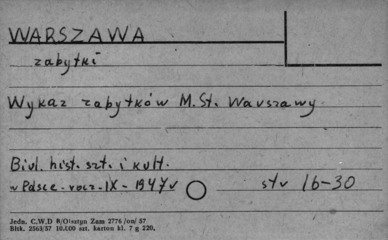 WARSZAWA
zabytki
Wykaz zabytków M. St. Warszawy
Biul. hist. szt. i kult.
w Polsce - rocz. IX - 1947r str 16-30
Jedn. C.W.D B/Olsztyn Zam 2776/on/57
Bltk. 2563/57 10.000 szt. karton kl. 7 g 220.